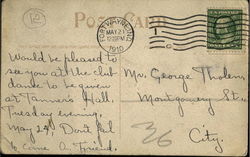 POST CARD
FORT WAYNE, IND.
MAY 21
12 30 PM
1910
Would be pleased to
see you at the club
dance to be given
at Tanner's Hall,
Tuesday evening,
May 24th Don't fail
to come A. Friend.
Mr. George Tholen
Montgomery St.
City.
36